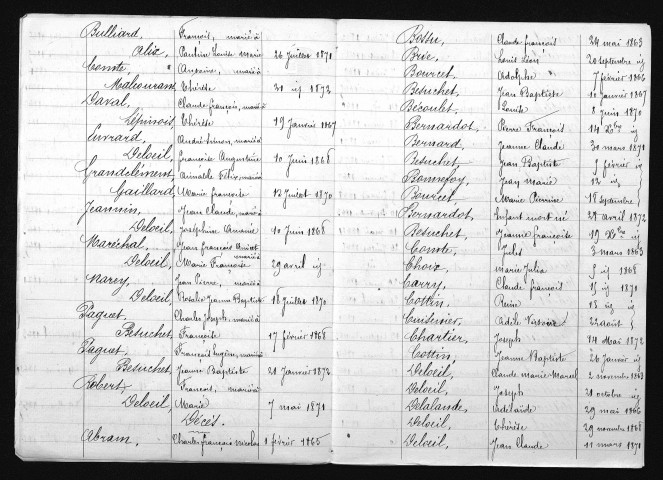 Bulliard, François, marié à
Alix, Pauline Louise Marie 24 juillet 1871
Comte, Antoine, marié à
Malcouram Thérèse 21 ij 1872
Daval, Claude françois, marié à
Lépinois Thérèse 19 Janvier 1867
Euvrard, André Simon, marié à
Deloeil, françoise Augustine 10 Juin 1868
Grandclément, Aimable Félix, marié à
Gaillard, Marie françoise 12 Juillet 1870
Jeannin, Jean Claude, marié à
Deloeil, Joséphine 10 Juin 1868
Maréchal, Jean françois marié à
Deloeil, Marie Françoise 29 avril ij
Marey, Jean Pierre, marié à
Deloeil, Rosalie Jeanne Baptiste 18 Juillet 1870
Paguet, Charles Joseph, marié à
Besuchet, Françoise 17 février 1868
Paguet, François Eugène, marié à
Besuchet, Jeanne Baptiste 21 Janvier 1872
Robert, François, marié à
Deloeil, Marie 7 mai 1871
Décès.
Abram, Charles françois nicolas 1 février 1865
Bossu, Claude françois 24 mai 1865
Brie, Louis Léon 20 septembre ij
Bourcet, Adolphe 7 février 1866
Besuchet, Jean Baptiste 10 Janvier 1867
Bésoulet, 8 Juin 1870
Bernardot, Pierre François 14 Xbre ij
Bernard, Jeanne Claude 30 mars 1871
Besuchet, Jean Baptiste 5 février ij
Bonnefoy, Jean Marie 12 ij
Bourcet, Marie Pierrine 18 septembre
Bernardot, Enfant mort né 27 avril 1872
Besuchet, Jeanne françoise 19 Xbre ij
Comte, Jules 3 mars 1863
Choix, Marie Julia 5 ij 1868
Carry, Claude françois 15 ij 1870
Cottin, Reine 13 ij
Cuisinier, Adèle 22 août
Chartier, Joseph 24 Mai 1872
Cottin, Jeanne Baptiste 26 Janvier ij
Deloeil, Claude Marie Marcel 2 novembre 1863
Deloeil, Joseph 21 octobre ij
Delalande, Adélaïde 29 mai 1866
Deloeil, Thérèse 29 novembre 1868
Deloeil, Jean Claude 11 mars 1870